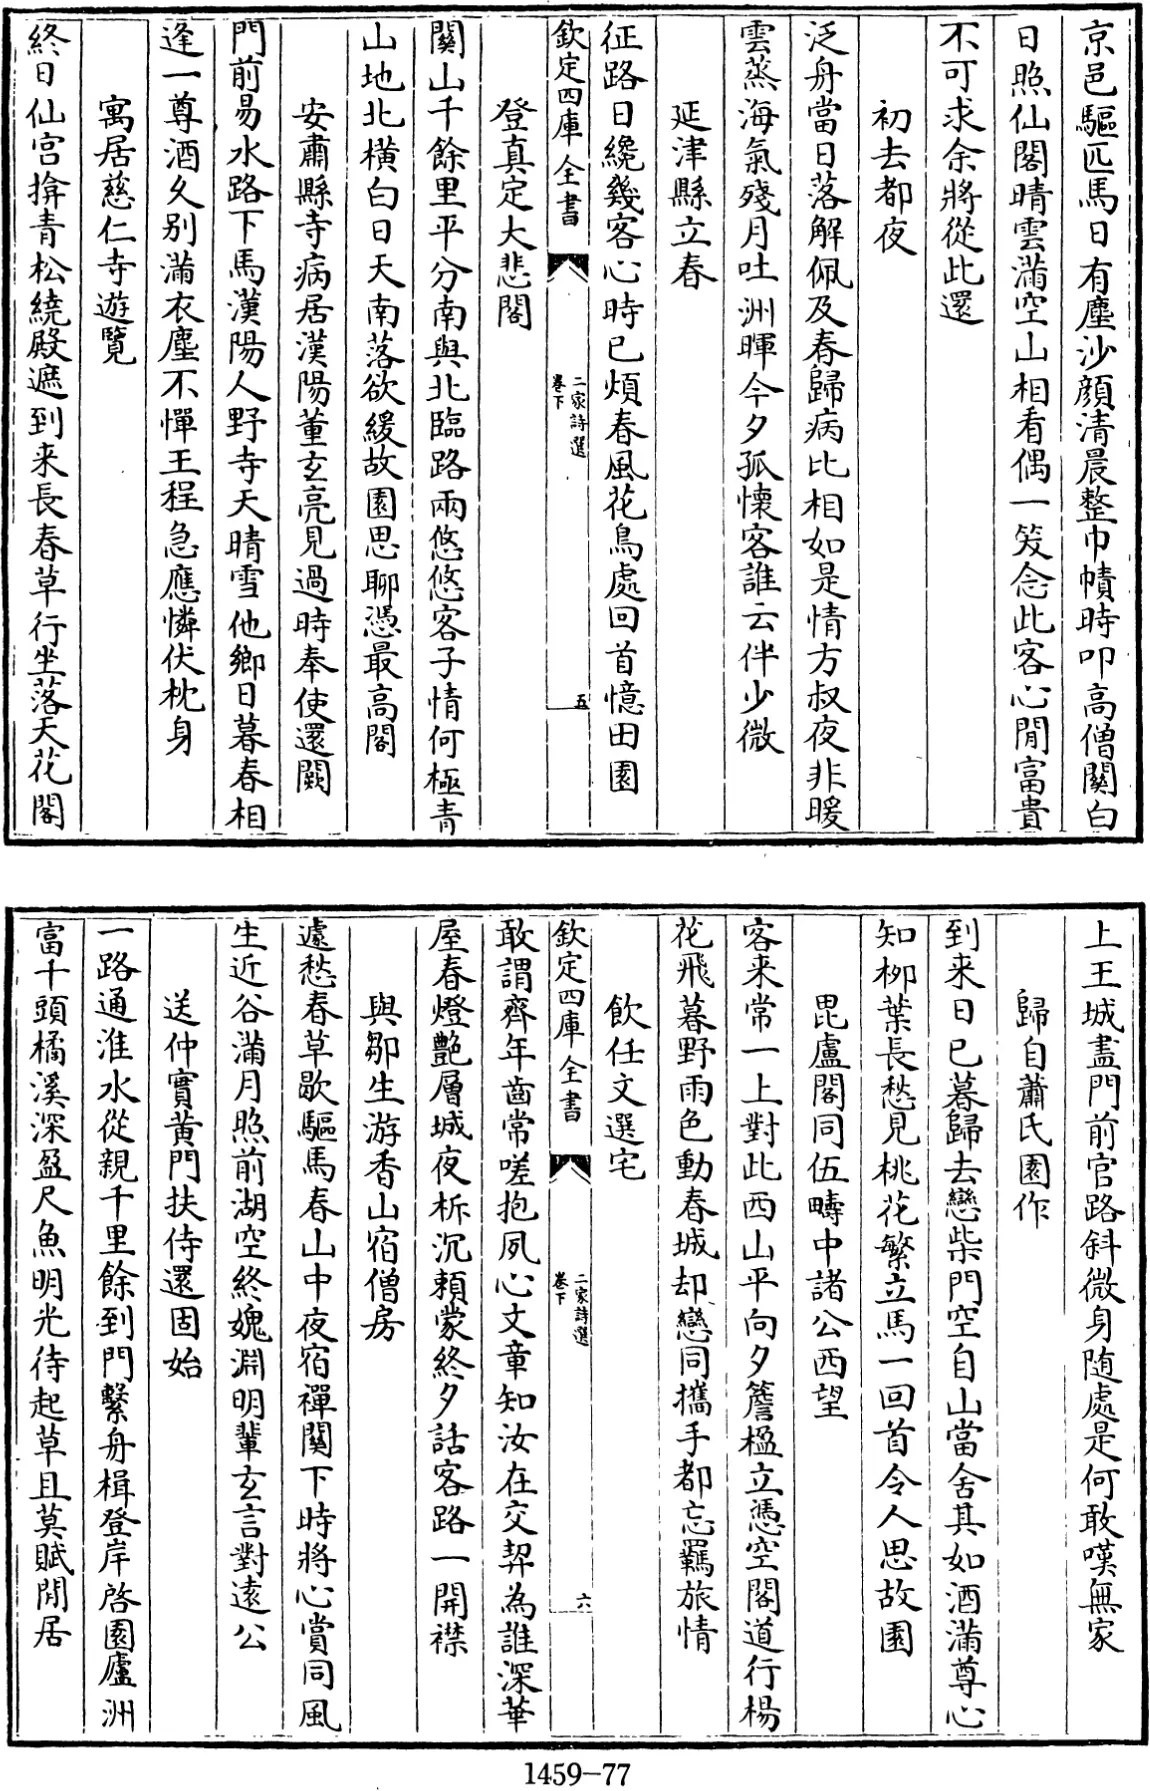 京邑驅匹馬日有塵沙顔清晨整巾幘時叩高僧關白
日照仙閣晴雲滿空山相看偶一笑念此客心閒富貴
不可求余將從此還
初去都夜
泛舟當日落解佩及春歸病比相如是情方叔夜非暖
雲蒸海氣殘月吐洲暉今夕孤懷客誰云伴少微
延津縣立春
征路日纔幾客心時已煩春風花鳥處回首憶田園
欽定四庫全書
二家詩選
卷下
五
登真定大悲閣
關山千餘里平分南與北臨路兩悠悠客子情何極青
山地北橫白日天南落欲緩故園思聊憑最高閣
安肅縣寺病居漢陽董玄亮見過時奉使還闕
門前易水路下馬漢陽人野寺天晴雪他鄉日暮春相
逢一尊酒久别滿衣塵不憚王程急應憐伏枕身
寓居慈仁寺遊覽
終日仙宫揜青松繞殿遮到来長春草行坐落天花閣
上王城盡門前官路斜微身随處是何敢嘆無家
歸自蕭氏園作
到来日已暮歸去戀柴門空自山當舍其如酒滿尊心
知栁葉長愁見桃花繁立馬一回首令人思故園
毘盧閣同伍疇中諸公西望
客来常一上對此西山平向夕簷楹立憑空閣道行楊
花飛暮野雨色動春城却戀同攜手都忘羈旅情
飲任文選宅
欽定四庫全書
二家詩選
卷下
六
敢謂齊年齒常嗟抱夙心文章知汝在交契為誰深華
屋春燈艷層城夜柝沉頼蒙終夕話客路一開襟
與鄒生游香山宿僧房
遽愁春草歇驅馬春山中夜宿禪關下時將心賞同風
生近谷滿月照前湖空終媿淵明輩玄言對遠公
送仲實黄門扶侍還固始
一路通淮水從親千里餘到門繫舟楫登岸啓園廬洲
富千頭橘溪深盈尺魚明光待起草且莫賦閒居
1459—77